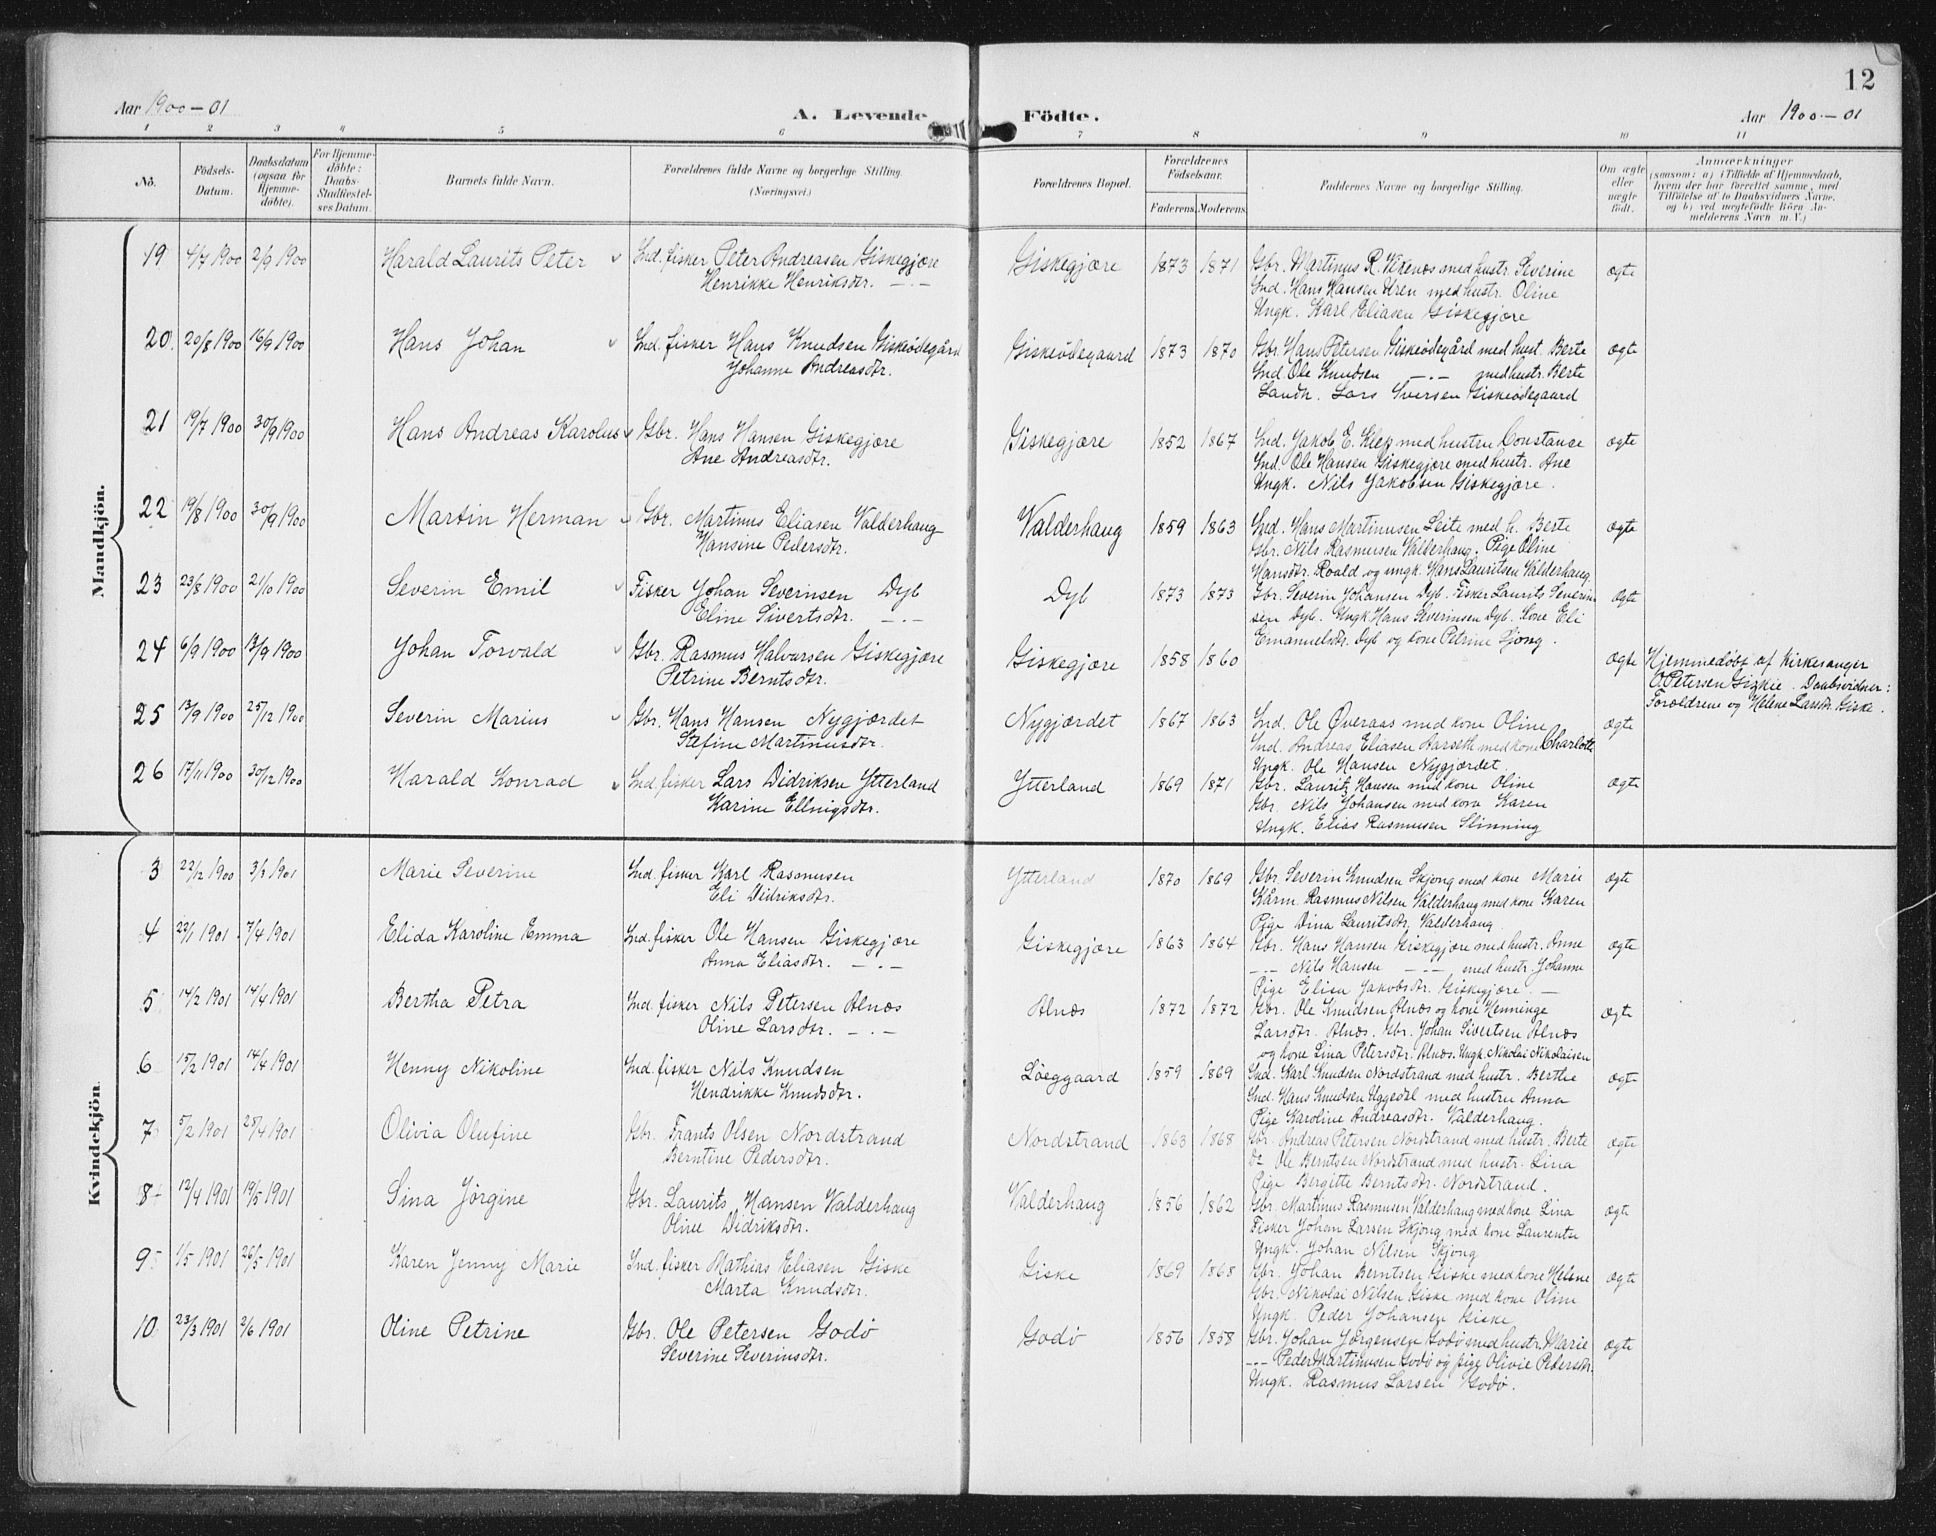 12
Aar 1900 – 01
A. Levende
Födte.
Aar 1900 – 01
1 2 3 4 5 6 7 8 9 10 11
No.
Födsels-Datum.
Daabsdatum (ogsaa for Hjemme-döbte).
For Hjemme-döbte: Daabs-Stadfæstel-ses Datum.
Barnets fulde Navn.
Forældrenes fulde Navne og borgerlige Stilling. (Næringsvei.)
Forældrenes Bopæl.
Forældrenes Födselsaar.
Faderens. Moderens.
Faddernes Navne og borgerlige Stilling.
Om ægte eller uægte født.
Anmærkninger
(saasom: a) i Tilfælde af Hjemmedaab,
hvem der har forrettet samme, med
Tilföielse af to Daabsvidners Navne,
og b) ved uægtefödte Börn An-
melderens Navn m. V.)
Mandkjön.
19 4/7 1900 2/9 1900 Harald Laurits Peter Ind. fisker Peter Andreasen Giskegjære Giskegjære 1873 1871 Gbr. Martinus R. Vikenæs med hustr. Severine ægte
Henrikke Henriksdtr. –·– Ind. Hans Hansen Uren med hustr. Oline
Ungk. Karl Eliasen Giskegjære
20 20/8 1900 16/9 1900 Hans Johan Ind. fisker Hans Knudsen Giskeødegård Giskeødegaard 1873 1870 Gbr. Hans Petersen Giskeødegård med hust. Berte ægte
Johanne Andreasdtr. Ind. Ole Knudsen –·– med hustr. Berte
Landh. Lars Iversen Giskeødegaard
21 19/7 1900 30/9 1900 Hans Andreas Karolus Gbr. Hans Hansen Giskegjære Giskegjære 1852 1867 Ind. Jakob E. Klep med hustru Constanse ægte
Ane Andreasdtr. Ind. Ole Hansen Giskegjære med hustr. Ane
Ungk. Nils Jakobsen Giskegjære.
22 19/8 1900 30/9 1900 Martin Herman Gbr. Martinus Eliasen Valderhaug Valderhaug 1859 1863 Ind. Hans Martinusen Leite med h. Berte ægte
Hansine Pedersdtr. Gbr. Nils Rasmusen Valderhaug. Pige Oline
Hansdtr. Roald og ungk. Hans Lauritsen Valderhaug.
23 23/8 1900 21/10 1900 Severin Emil Fisker Johan Severinsen Dyb Dyb 1873 1873 Gbr. Severin Johansen Dyb. Fisker Laurits Severin- ægte
Eline Sivertsdtr. –·– sen Dyb. Ungk Hans Severinsen Dyb. Kone Eli
Emanuelsdtr. Dyb og kone Petrine Fjong.
24 6/9 1900 13/9 1900 Johan Torvald Gbr. Rasmus Halvarsen Giskegjære Giskegjære 1858 1860 ægte Hjemmedøbt af Kirkesanger
Petrine Berntsdtr. O. Petersen Giskie. Daabsvidner:
Forældrene og Helene Larsdtr. Giske.
25 13/9 1900 25/12 1900 Severin Marius Gbr. Hans Hansen Nygjærdet Nygjærdet 1867 1863 Ind. Ole Øveraas med kone Oline ægte
Stefine Martinusdtr. Ind. Andreas Eliasen Aarseth med kone Charlotte
Ungk. Ole Hansen Nygjærdet.
26 17/11 1900 30/12 1900 Harald Konrad Ind. fisker Lars Didriksen Ytterland Ytterland 1869 1871 Gbr. Lauritz Hansen med kone Oline ægte
Karine Ellingsdtr. Gbr. Nils Johansen med kone Karen
Ungk. Elias Rasmusen Slinning
Kvindekjön.
3 22/12 1900 3/3 1901 Marie Severine Ind. fisker Karl Rasmusen Ytterland 1870 1869 Gbr Severin Knudsen Skjong med kone Marie ægte
Eli Didriksdtr. Kårm. Rasmus Nilsen Valderhaug med kone Karen
Pige Dina Lauritsdtr. Valderhaug.
4 22/1 1901 7/4 1901 Elida Karoline Emma Ind. fisker Ole Hansen Giskegjære Giskegjære 1863 1864 Gbr. Hans Hansen Giskegjære med hustr. Anne ægte
Anna Eliasdtr. –·– –·– Nils Hansen –·– med hustr Johanne
Pige Elisa Jakobsdtr. Giskegjære –
5 14/2 1901 14/4 1901 Bertha Petra Ind. fisker Nils Petersen Alnæs Alnæs 1872 1872 Gbr. Ole Knudsen Alnæs og kone Henninge ægte
Oline Larsdtr. –·– Larsdtr. Alnæs. Gbr. Johan Sivertsen Alnæs
og kone Lina Petersdtr. Alnæs. Ungk. Nikolai Nikolaisen
6 15/2 1901 14/4 1901 Henny Nikoline Ind. fisker Nils Knudsen Løeggaard 1859 1869 Ind. Karl Knudsen Nordstrand med hustr. Berthe ægte
Hendrikke Knudsdtr. Ind. Hans Knudsen Uggedal med hustru Anna
Pige Karoline Andreasdtr. Valderhaug.
7 5/2 1901 28/4 1901 Olivia Olufine Gbr. Frants Olsen Nordstrand Nordstrand 1863 1868 Gbr. Andreas Petersen Nordstrand med hustr. Berte ægte
Berntine Pedersdtr. Do Ole Berntsen Nordstrand med hustr. Lina
Pige Bergitte Berntsdtr. Nordstrand.
8 12/4 1901 19/5 1901 Sina Jørgine Gbr. Laurits Hansen Valderhaug Valderhaug 1856 1862 Gbr. Martinus Rasmusen Valderhaug med kone Lina ægte
Oline Didriksdtr. Fisker Johan Larsen Skjong med kone Laurentse
Ungk. Johan Nilsen Skjong
9 1/5 1901 26/5 1901 Karen Jenny Marie Ind. fisker Mathias Eliasen Giske Giske 1869 1868 Gbr. Johan Berntsen Giske med kone Helene ægte
Marta Knudsdtr. Gbr. Nikolai Nilsen Giske med kone Oline
Ungk. Peder Johansen Giske
10 23/3 1901 2/6 1901 Oline Petrine Gbr. Ole Petersen Godø Godø 1856 1858 Gbr. Johan Jørgensen Godø med hustr. Marie ægte
Severine Severinsdtr. –·– Peder Martinusen Godø og pige Olivie Pedersdtr.
Ungk. Rasmus Larsen Godø.